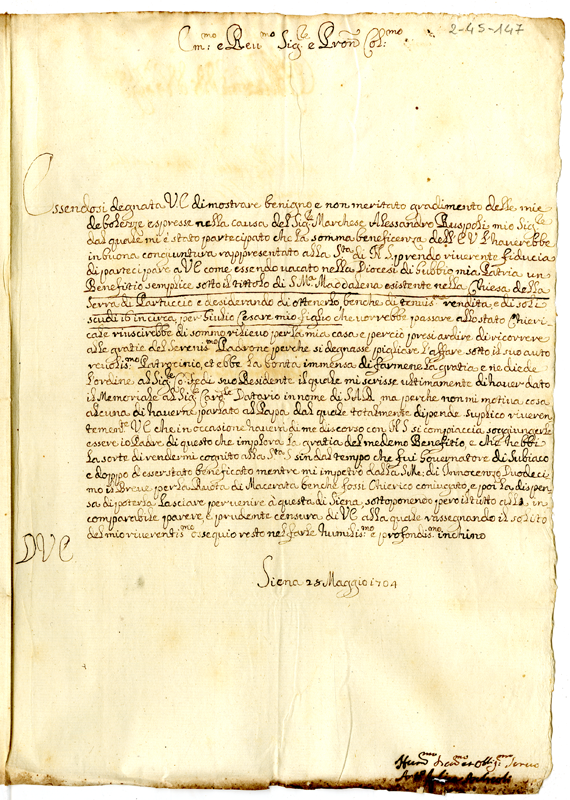 2-45-147
Em:mo e Reu:mo Sig:re e Pron Col:mo
Essendosi degnata VE di mostrare benigno e non meritato gradimento delle mie
debolezze espresse nella causa del Sig: Marchese Alessandro Ruspoli mio Sig:re
dal quale mi è stato partecipato che la somma beneficenza dell'E V l'haverebbe
in buona congiuntura rappresentato alla S:tà di N.S. prendo riverente fiducia
di partecipare a VE come essendo vacato nella Diocesi di Gubbio mia Patria un
Benefitio semplice sotto il tittolo di S. M:a Maddalena esistente nella Chiesa della
Serra di Partuccio e desiderando di ottenerlo benche di tenuis rendita, e di soli
scudi 16 in circa per Giulio Cesare mio figlio che vorrebbe passare allo stato Chieri
cale riuscirebbe di sommo rilievo per la mia casa e perciò presi ardire di ricorrere
alle gratie del Serenis:mo Padrone perche si degnasse pigliare l'affare sotto il suo auto
reuolis:mo Patrocinio, et ebbe la bontà immensa di farmene la gratia e ne diede
l'ordine al Sig:re di suo Residente il quale mi scrisse ultimamente di haver dato
il Memoriale al Sig:r Card:le Datario in nome di S.A.S. ma perche non mi motiva cosa
alcuna di haverne parlato al Papa dal quale totalmente dipende suplico riveren
temente VE che in occasione haverà di me discorso con N S si compiaccia soggiungerle
essere io Padre di questo che implora la gratia del medemo Benefitio e che hebbi
la sorte di rendermi cognito alla S:tà S sin dal tempo che fui Gouernatore di Subiaco
e doppo d'esser stato beneficato mentre mi impetrò dalla S.M: di Innocenzo Duodeci
mo il Breve per la Ruota di Macerata benche fossi Chierico coniugato, e poi la dispen
sa di poterla lasciare per venire à questa di Siena, sottoponendo però il tutto alla in
comparabile parere, e prudente censura di VE alla quale rassegnando il solito
del mio riverentis:mo ossequio resto nel farle humilis:mo e profondis:mo inchino
DVE
Siena 28 Maggio 1704
Hum:mo Dev:mo et Obl:mo Servo